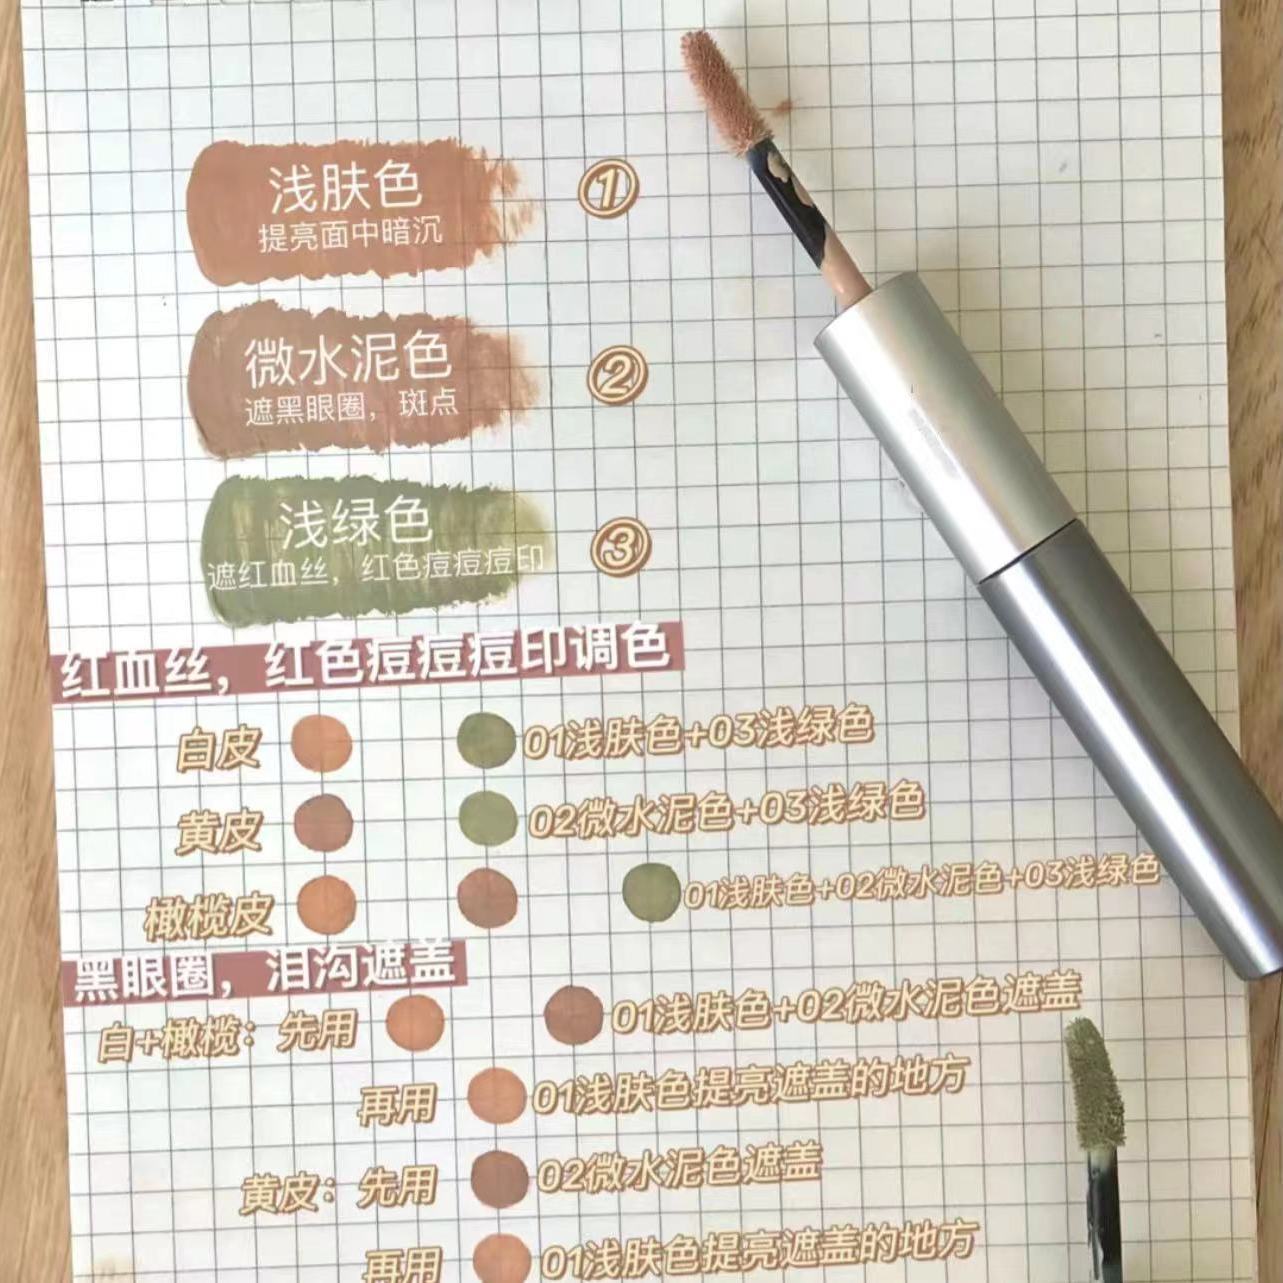 浅肤色
提亮面中暗沉
①
微水泥色
遮黑眼圈，斑点
②
浅绿色
遮红血丝，红色痘痘痘印
③
红血丝，红色痘痘痘印调色
白皮 01浅肤色+03浅绿色
黄皮 02微水泥色+03浅绿色
橄榄皮 01浅肤色+02微水泥色+03浅绿色
黑眼圈，泪沟遮盖
白+橄榄：先用 01浅肤色+02微水泥色遮盖
再用 01浅肤色提亮遮盖的地方
黄皮：先用 02微水泥色遮盖
再用 01浅肤色提亮遮盖的地方